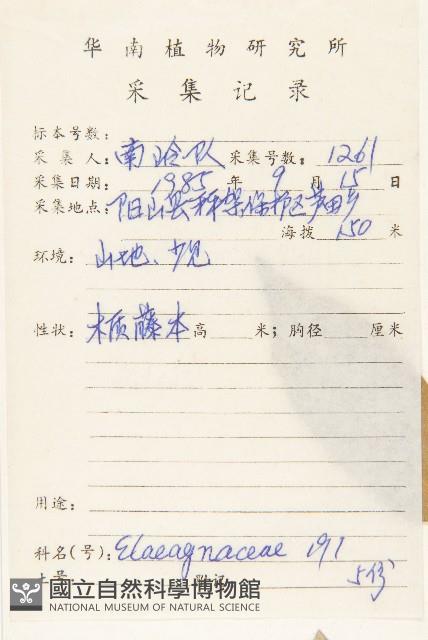 华南植物研究所
采集记录
标本号数:
采集人: 南岭队 采集号数: 1261
采集日期: 1985 年 9 月 15 日
采集地点: 阳山县秤架保护区
海拨 150 米
环境: 山地、少见
性状: 木质藤本 高 米; 胸径 厘米
用途:
科名(号): Elaeagnaceae 191
土名: 附记 5份
國立自然科學博物館
NATIONAL MUSEUM OF NATURAL SCIENCE